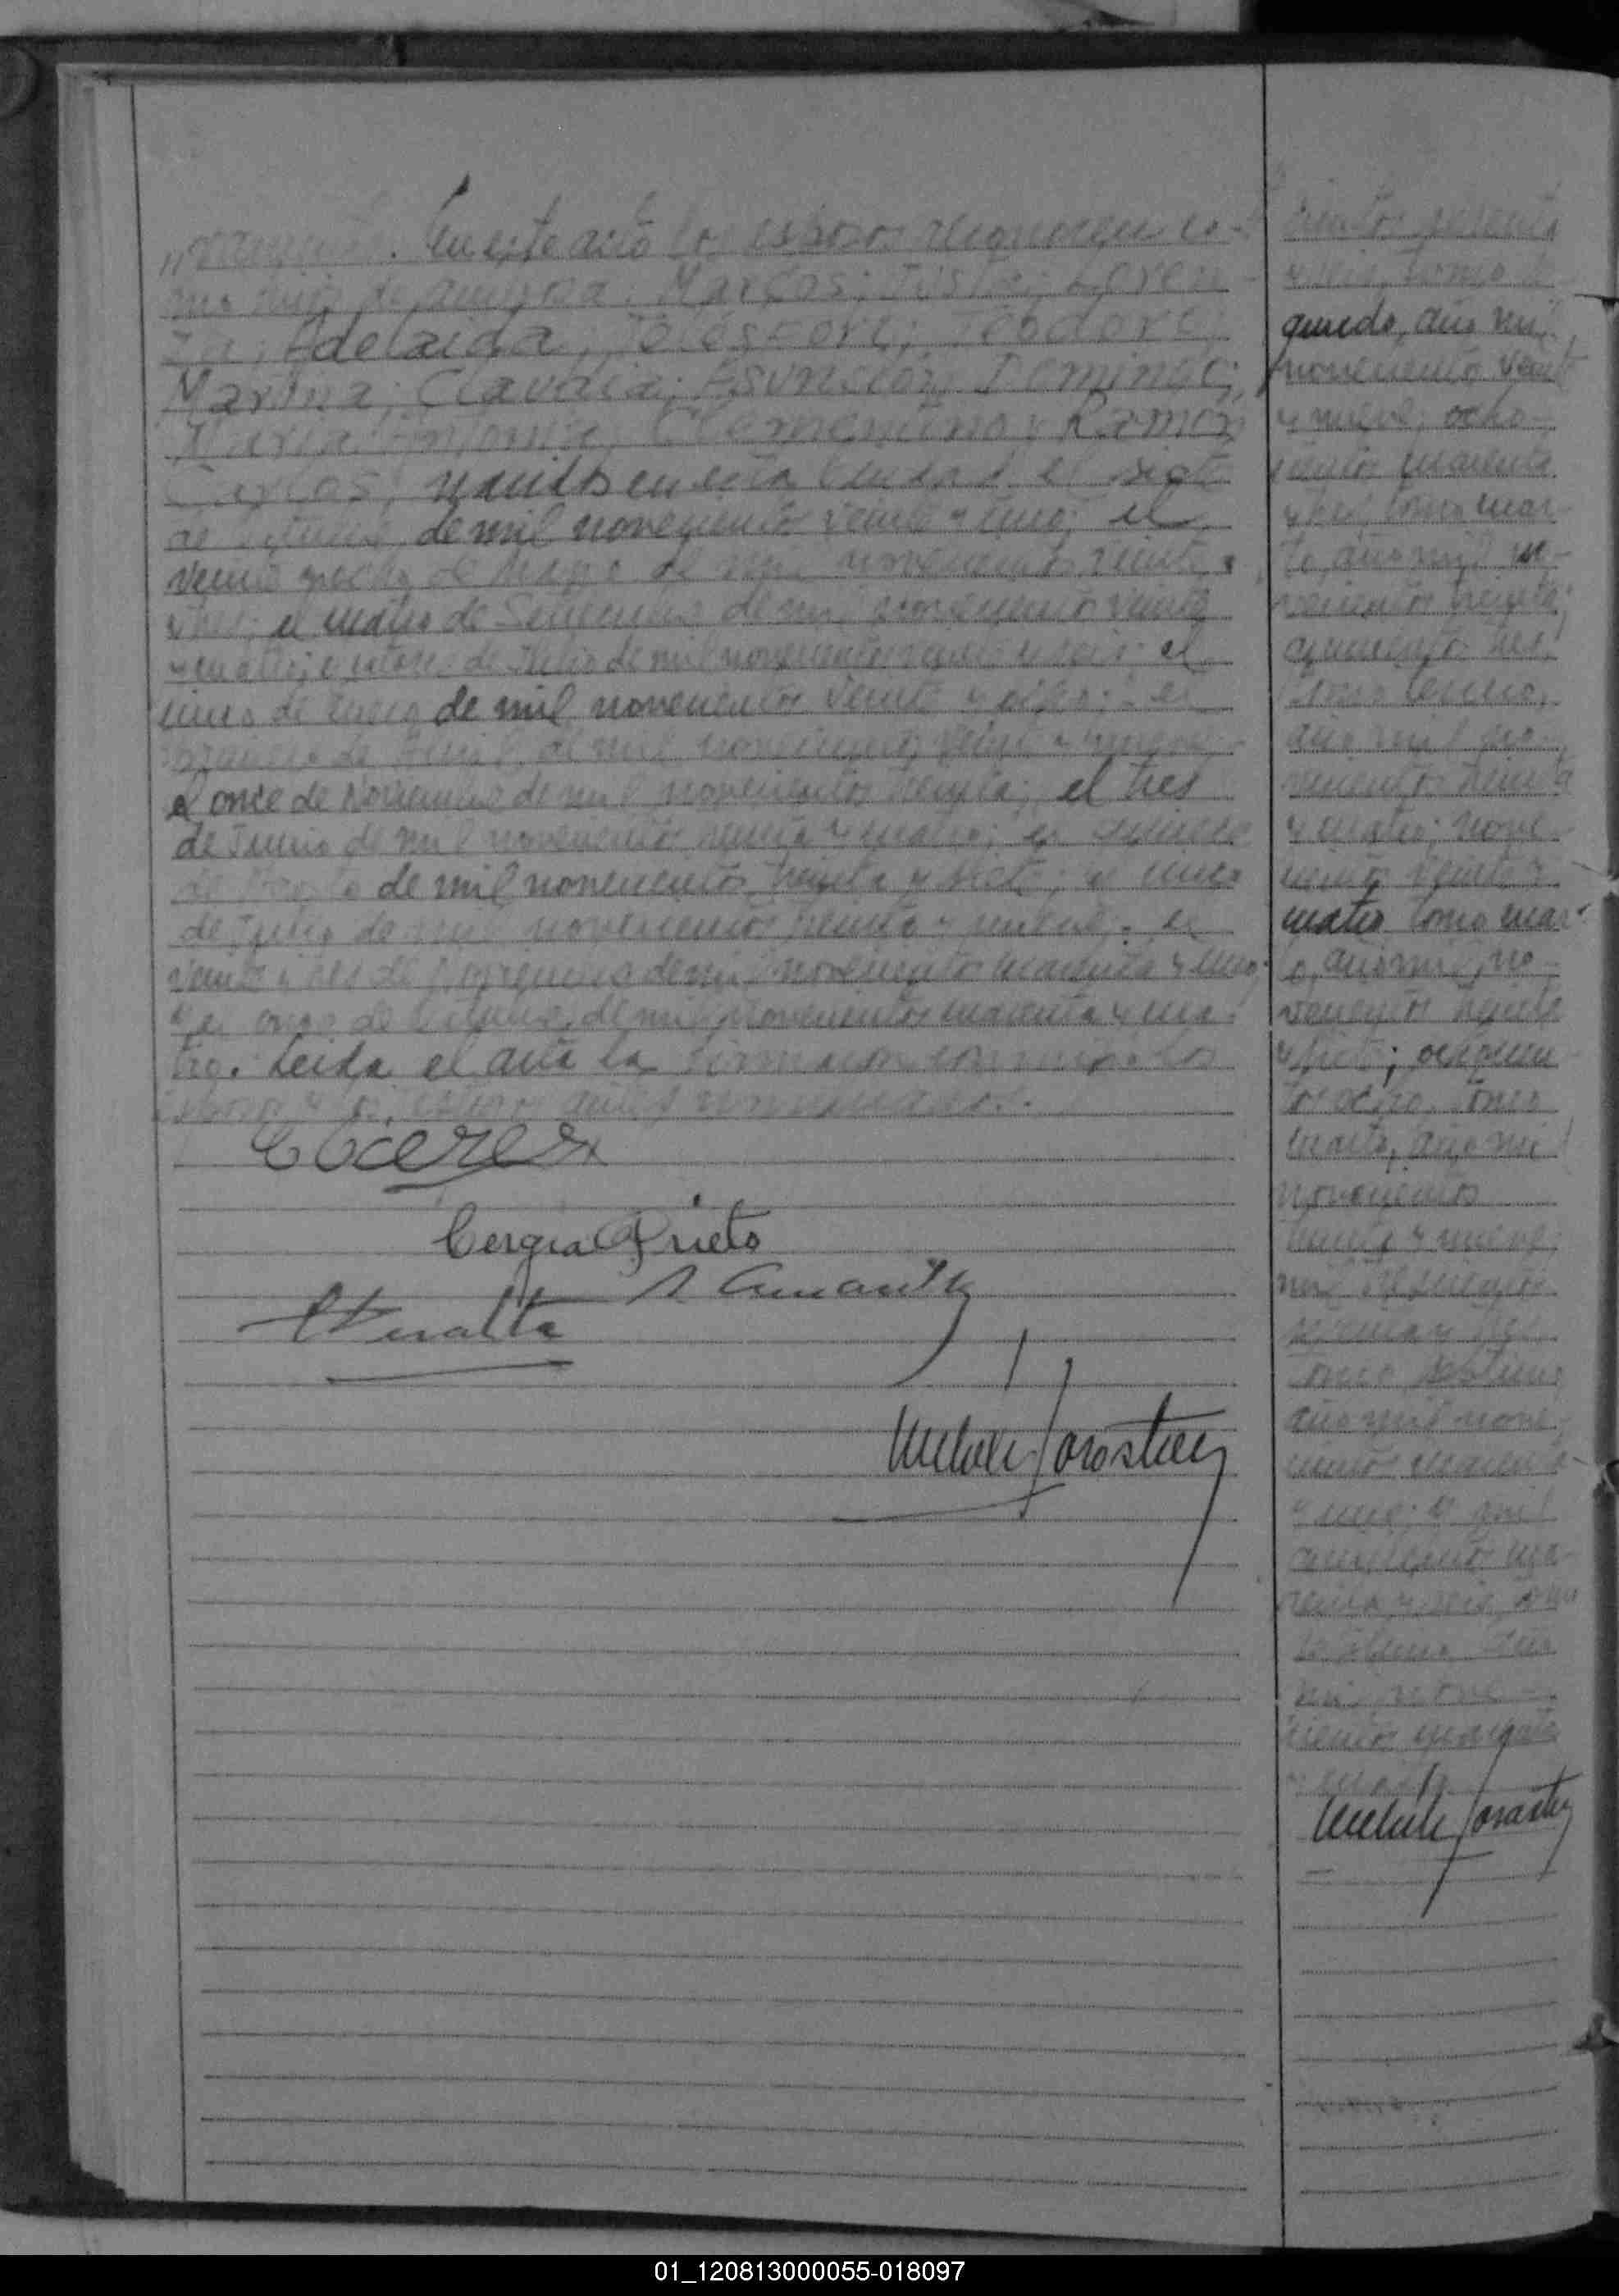 . En este acto los esposos reconocen co-
mo hijos de ambos a: Marcos; Justa; Loren-
za; Adelaida; Telesfora; Teodora;
Marina; Claudia; Asunción; Dominga;
María Antonia; Clementino y Ramón
Carlos, nacidos en esta Ciudad el siete
de Octubre de mil novecientos veinte y uno; el
veinte y ocho de Mayo de mil novecientos veinte
y tres; el cuatro de Setiembre de mil novecientos veinte
y cuatro; el catorce de Julio de mil novecientos veinte y seis; el
cinco de Enero de mil novecientos veinte y ocho; el
primero de Abril de mil novecientos veinte y nueve;
el once de Noviembre de mil novecientos treinta; el tres
de Junio de mil novecientos treinta y cuatro; el quince
de Agosto de mil novecientos treinta y siete; el cinco
de Julio de mil novecientos treinta y nueve; el
veinte y tres de de mil novecientos cuarenta y uno;
y el once de Octubre de mil novecientos cuarenta y cua-
tro. Leída el acta la firmaron conmigo los
esposos y los testigos antes nombrados.
Cergia Prieto
Peralta
cientos sesenta
y seis, tomo se-
gundo, año mil
novecientos veinte
y nueve; ocho-
cientos cuarenta
y tres, tomo cuar-
to, año mil no-
vecientos treinta;
quinientos tres,
tomo tercero,
año mil no-
vecientos treinta
y cuatro; nove-
cientos veinte y
cuatro, tomo cuar-
to, año mil no-
vecientos treinta
y siete; 
tos ocho, tomo
cuarto, año mil
novecientos
treinta y nueve;
mil 
tomo séptimo,
año mil nove-
cientos cuarenta
y uno; y mil
quinientos cua-
renta y seis, tomo
séptimo, año
mil nove-
cientos cuarenta
y cuatro.
01_120813000055-018097